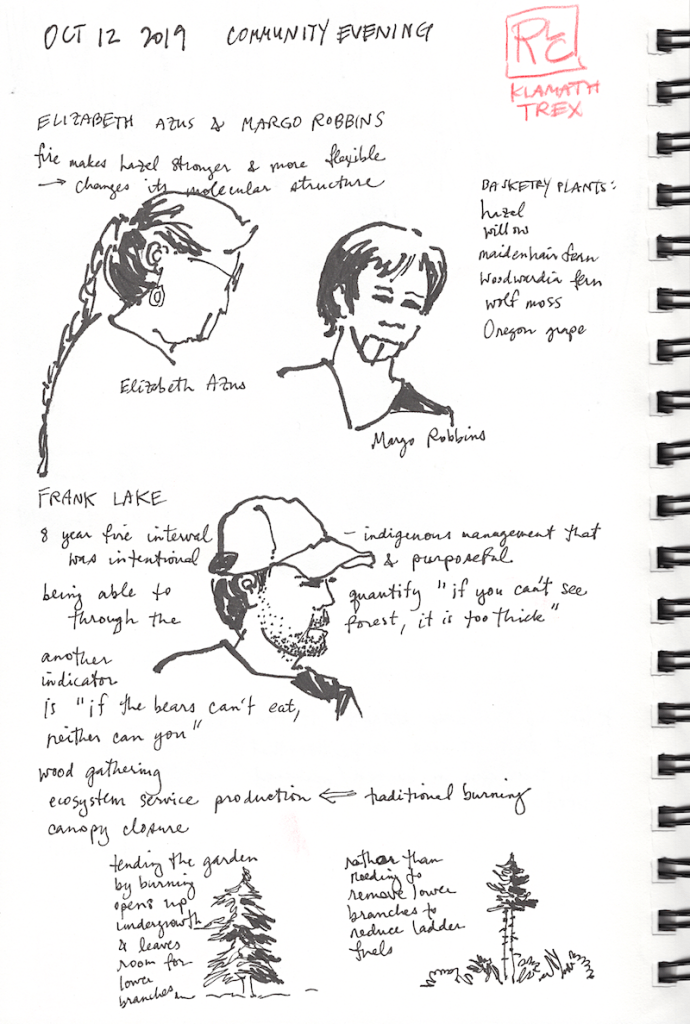 OCT 12 2019 COMMUNITY EVENING
RLC
KLAMATH
TREX
ELIZABETH AZUS & MARGO ROBBINS
fire makes hazel stronger & more flexible
→ changes its molecular structure
BASKETRY PLANTS:
hazel
willow
maidenhair fern
Woodwardia fern
wolf moss
Oregon grape
Elizabeth Azus
Margo Robbins
FRANK LAKE
8 year fire interval – indigenous management that
was intentional & purposeful
being able to quantify "if you can't see
through the forest, it is too thick"
another
indicator
is "if the bears can't eat,
neither can you"
wood gathering
ecosystem service production ⇐ traditional burning
canopy closure
tending the garden
by burning
opens up
undergrowth
& leaves
room for
lower
branches
rather than
needing to
remove lower
branches to
reduce ladder
fuels